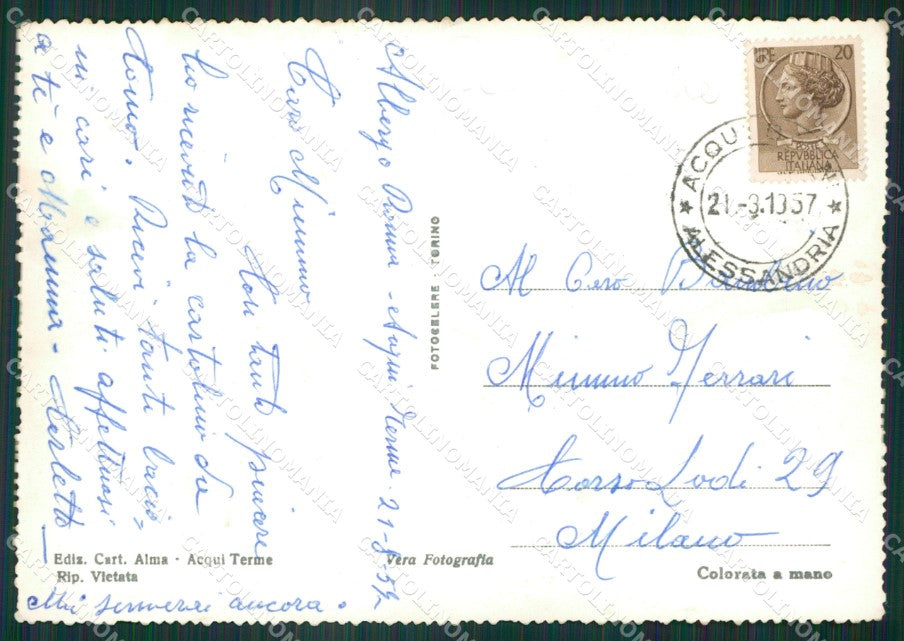 Albergo Parma - Acqui Terme 21-8-57
Caro Mimmo,
Con tanto piacere
ho ricevuto la cartolina da
Como. Ricevi tanti bacio=
ni cari, e saluti affettuosi
a te e Mamma -
Mi scriverai ancora.
Ediz. Cart. Alma - Acqui Terme
Rip. Vietata
Vera Fotografia
Colorata a mano
FOTOCELERE TORINO
LIRE 20
POSTE
REPVBBLICA
ITALIANA
ACQUI
21.-8.1957
ALESSANDRIA
Al Caro Bambino
Mimmo Ferrari
Corso Lodi 29
Milano
CARTOLINOMANIA